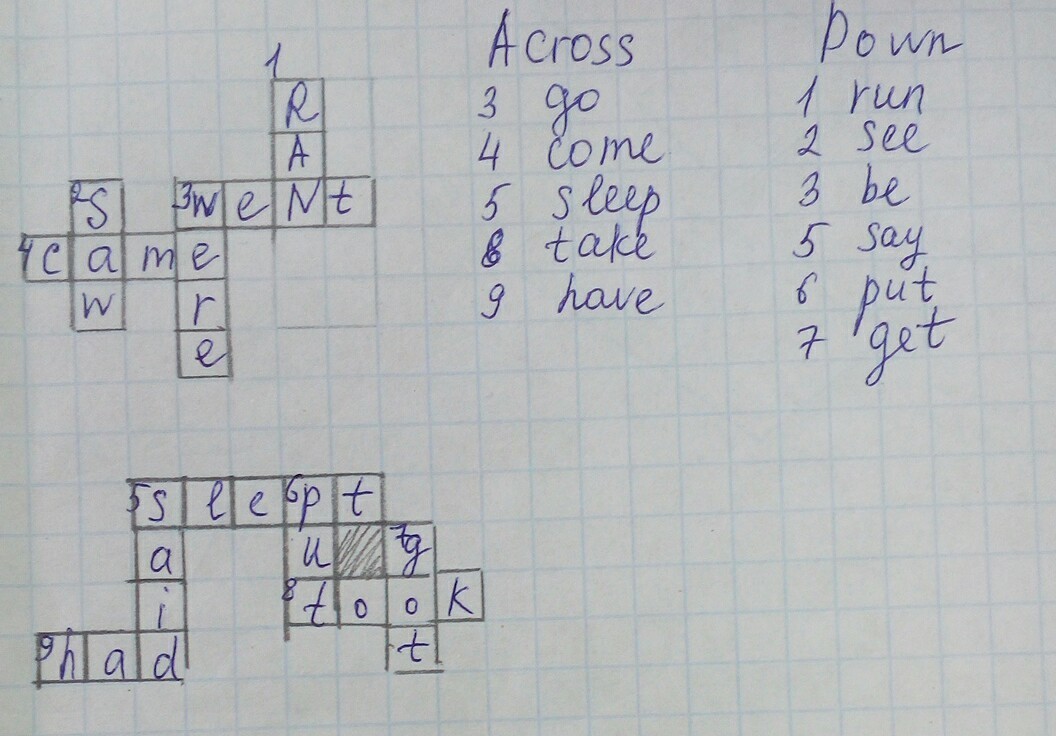 Across
3 go
4 come
5 sleep
8 take
9 have
Down
1 run
2 see
3 be
5 say
6 put
7 get
1
R
A
2s 3weNt
4came
w r
e
5sle6pt
a u 7g
i 8took
9had t